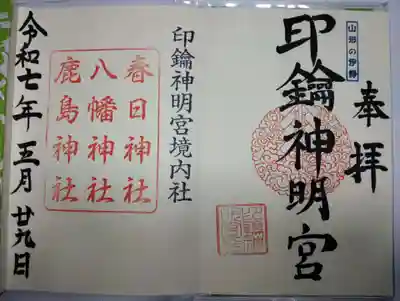 奉拝
山形の伊勢
印鑰神明宮
印鑰神明宮境内社
春日神社
八幡神社
鹿島神社
令和七年五月廿九日